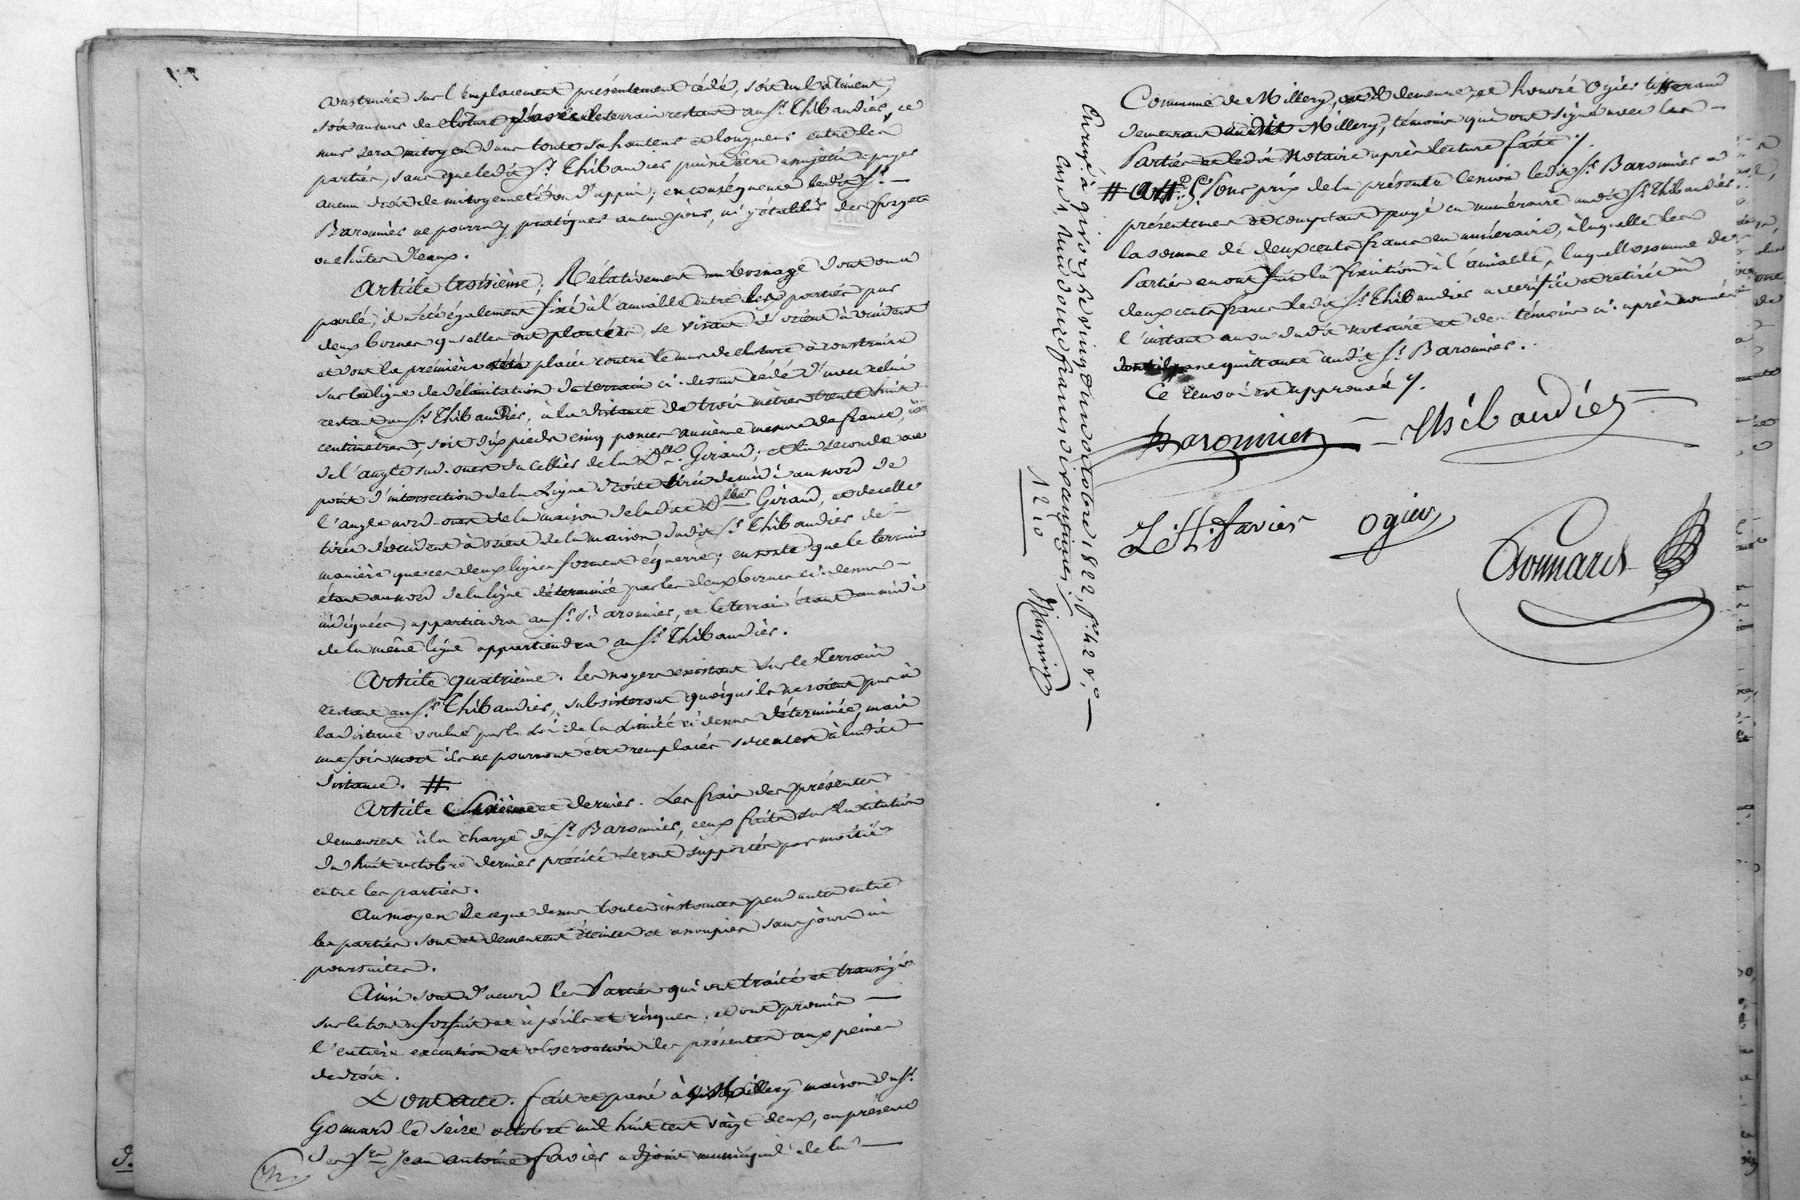 construire sur l'emplacement présentement cédé, soit un bâtiment,
soit un mur de clôture d'avec le terrain restant au Sr. Thibaudier, ce
mur sera mitoyen dans toute sa hauteur et longueur entre les
parties, sans que ledit Sr. Thibaudier puisse être assujetti à payer
aucun droit de mitoyenneté ou d'appui; en conséquence ledit Sr.
Baronnier ne pourra y pratiquer aucuns jours, ni y établir des forgets
ou chûtes d'eaux.
Article troisième; Rélativement au bornage dont on a
parlé, il a été également fixé à l'amiable entre les parties par
deux bornes qu'elles ont plantées, se visant d'orient à occident
et dont la première a été placée contre le mur de cloture à construire
sur la ligne de délimitation du terrain ci-dessus cédé d'avec celui
restant au Sr. Thibaudier, à la distance de trois mètres trente huit
centimètres, soit dix pieds cinq pouces ancienne mesure de france,
de l'angle sud-ouest du cellier de la Dlle. Giraud; et la seconde au
point d'intersection de la ligne droite tirée de midi au nord de
l'angle nord-ouest de la maison de ladite Dlle. Giraud, et de celle
tirée d'occident à orient de la maison dudit Sr. Thibaudier de
manière que ces deux lignes forment équerre; en sorte que le terrain
étant au nord de la ligne déterminée par les deux bornes ci-dessus
indiquées, appartiendra au Sr. Baronnier, et le terrain étant au midi
de la même ligne appartiendra au Sr. Thibaudier.
Article quatrième. Les noyers existant sur le terrain
restant au Sr. Thibaudier, subsisteront quoiqu'ils ne soient pas à
la distance voulue par la loi de la limite ci-dessus déterminée, mais
une fois mort ils ne pourront être remplacés qu'à ladite
distance. #
Article sixième et dernier. Les frais des présentes
demeurent à la charge du Sr. Baronnier, ceux faits sur la citation
du huit octobre dernier précité seront supportés par moitié
entre les parties.
Au moyen de ce que dessus toutes instances pendantes entre
les parties sont et demeurent éteintes et assoupies sans pouvoir
poursuites.
Ainsi sont d'accord les Parties qui ont traité et transigé
sur le tout à forfait et à périls et risques, et ont promis
l'entière exécution et observation des présentes aux peines
de droit.
Dont acte. fait et passé à Millery maison du Sr.
Gonnard le seize octobre mil huit cent vingt deux, en présence
des Srs. Jean antoine favier adjoint municipal de la
Commune de Millery, y demeurant, et honoré Ogier tisserand
demeurant audit Millery, témoins qui ont signé avec les
Parties et ledit Notaire après lecture faite /.
# Art. 5e. Pour prix de la présente Cession ledit Sr. Baronnier a
présentement et comptant payé en numéraire audit Sr. Thibaudier
la somme de deux cents francs en numéraire, à laquelle les
Parties en ont fait la fixation à l'amiable, laquelle somme de
deux cents francs ledit Sr. Thibaudier a vérifiée et retirée à
l'instant au vu dudit notaire et des témoins ci-après nommés
dont il passe quittance audit Sr. Baronnier.
Ce renvoi est approuvé /.
Baronnier Thibaudier
J. A. favier Ogier
Gonnard
Enregé. à givors le vingt un octobre 1822, fo. 42 vo.